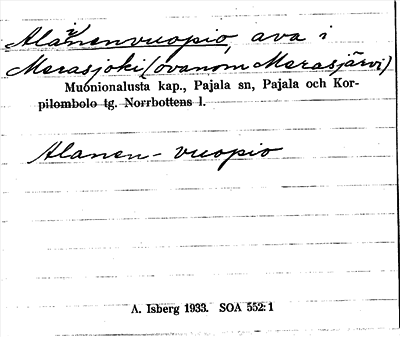 Alanenvuopio, ava i
Merasjoki (ovanom Merasjärvi)
Muonionalusta kap., Pajala sn, Pajala och Kor-
pilombolo tg. Norrbottens l.
Alanen-vuopio
A. Isberg 1933. SOA 552:1